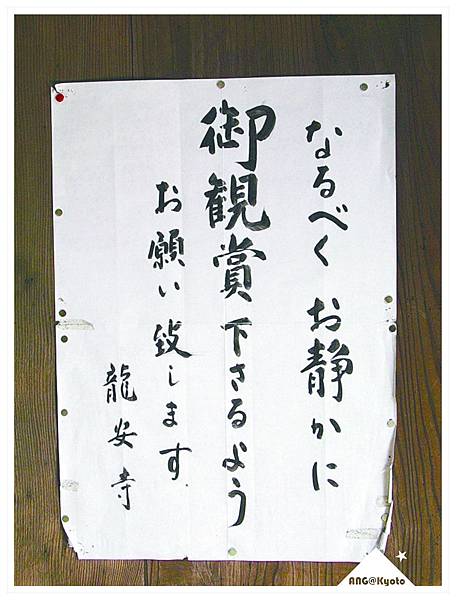 なるべくお静かに
御観賞下さるよう
お願い致します
龍安寺
ANG@Kyoto